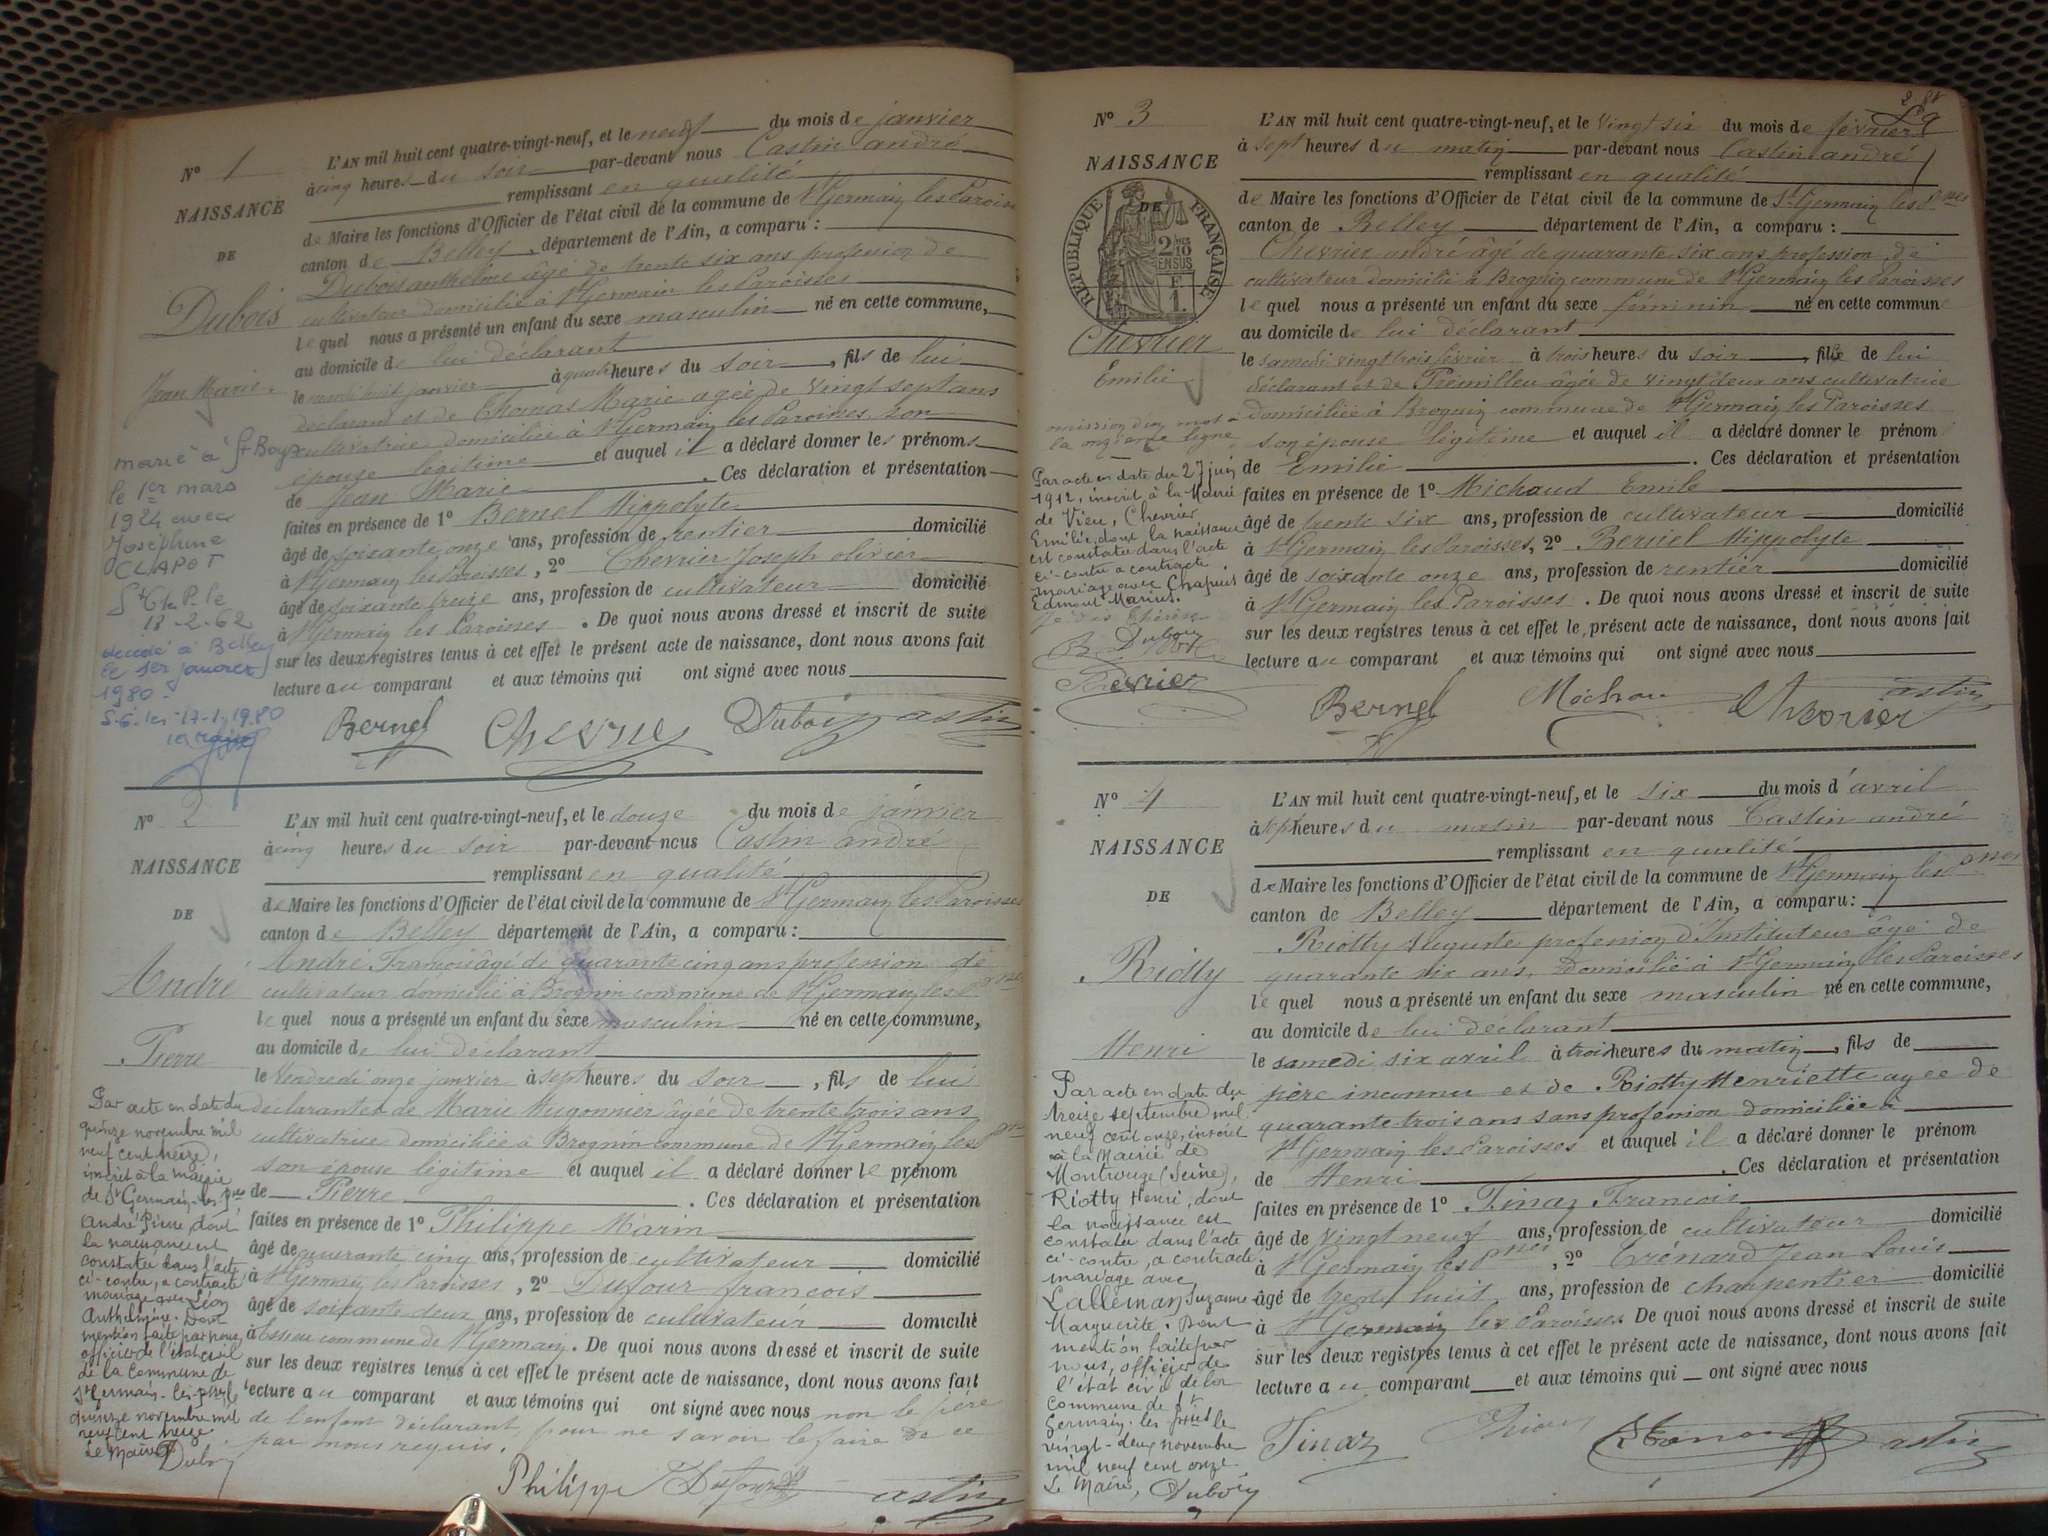 N° 1
NAISSANCE
DE
Dubois
Jean Marie
marié à St Boys
le 1er mars
1924 avec
Joséphine
CLAPOT
18-2-62
décédé à Belley
le 1er janvier
1980.
L'AN mil huit cent quatre-vingt-neuf, et le neuf du mois de janvier
à cinq heures du soir par-devant nous Castin andré
remplissant en qualité
de Maire les fonctions d'Officier de l'état civil de la commune de St Germain les Paroisses
canton de Belley, département de l'Ain, a comparu :
Dubois anthelme âgé de trente six ans profession de
cultivateur domicilié à St Germain les Paroisses
lequel nous a présenté un enfant du sexe masculin né en cette commune,
au domicile de lui déclarant
le mardi huit janvier à quatre heures du soir, fils de lui
déclarant et de Thomas Marie agée de vingt sept ans
cultivatrice domiciliée à St Germain les Paroisses, son
épouse légitime et auquel il a déclaré donner les prénoms
de Jean Marie. Ces déclaration et présentation
faites en présence de 1° Bernel Hippolyte
âgé de soixante onze ans, profession de rentier domicilié
à St Germain les Paroisses, 2° Chevrier Joseph olivier
âgé de soixante treize ans, profession de cultivateur domicilié
à St Germain les Paroisses. De quoi nous avons dressé et inscrit de suite
sur les deux registres tenus à cet effet le présent acte de naissance, dont nous avons fait
lecture au comparant et aux témoins qui ont signé avec nous
Bernel Chevrie Dubois Castin
N° 2
NAISSANCE
DE
André
Pierre
Par acte en date du
quinze novembre mil
neuf cent treize,
inscrit à la mairie
de St Germain-les-Pses
André Pierre, dont
la naissance est
constatée dans l'acte
ci-contre, a contracté
mariage avec Léon
Anthelmine. Dont
mention faite par nous
officier de l'état civil
de la Commune de
St Germain-les-Pses le
quinze novembre mil
neuf cent treize
Le Maire Dubois
L'AN mil huit cent quatre-vingt-neuf, et le douze du mois de janvier
à cinq heures du soir par-devant nous Castin andré
remplissant en qualité
de Maire les fonctions d'Officier de l'état civil de la commune de St Germain les Paroisses
canton de Belley département de l'Ain, a comparu :
André François âgé de quarante cinq ans profession de
cultivateur domicilié à Brognin commune de St Germain les Pses
lequel nous a présenté un enfant du sexe masculin né en cette commune,
au domicile de lui déclarant
le vendredi onze janvier à sept heures du soir, fils de lui
déclarant et de Marie Hugonnier âgée de trente trois ans
cultivatrice domiciliée à Brognin commune de St Germain les Pses
son épouse légitime et auquel il a déclaré donner le prénom
de Pierre. Ces déclaration et présentation
faites en présence de 1° Philippe Marin
âgé de quarante cinq ans, profession de cultivateur domicilié
à St Germain les Paroisses, 2° Dufour françois
âgé de soixante deux ans, profession de cultivateur domicilié
à Essieu commune de St Germain. De quoi nous avons dressé et inscrit de suite
sur les deux registres tenus à cet effet le présent acte de naissance, dont nous avons fait
lecture au comparant et aux témoins qui ont signé avec nous non le père
de l'enfant déclarant pour ne savoir le faire de ce
par nous requis.
Philippe Dufour Castin
N° 3
NAISSANCE
DE
RÉPUBLIQUE FRANÇAISE
2 10 EN SUS
F. 1.
Chevrier
Emilie
omission d'un mot à
la onzième ligne
Par acte en date du 27 juin
1912, inscrit à la Mairie
de Vieu, Chevrier
Emilie, dont la naissance
est constatée dans l'acte
ci-contre a contracté
mariage avec Chapuis
Edmont Marius.
L'AN mil huit cent quatre-vingt-neuf, et le vingt six du mois de février
à sept heures du matin par-devant nous Castin andré
remplissant en qualité
de Maire les fonctions d'Officier de l'état civil de la commune de St Germain les Pses
canton de Belley département de l'Ain, a comparu :
Chevrier andré âgé de quarante six ans profession de
cultivateur domicilié à Brognin commune de St Germain les Paroisses
lequel nous a présenté un enfant du sexe féminin né en cette commune
au domicile de lui déclarant
le samedi vingt trois février à trois heures du soir, fille de lui
déclarant et de Prémilleu âgée de vingt deux ans cultivatrice
domiciliée à Brognin commune de St Germain les Paroisses
son épouse légitime et auquel il a déclaré donner le prénom
de Emilie. Ces déclaration et présentation
faites en présence de 1° Michaud Emile
âgé de trente six ans, profession de cultivateur domicilié
à St Germain les Paroisses, 2° Bernel Hippolyte
âgé de soixante onze ans, profession de rentier domicilié
à St Germain les Paroisses. De quoi nous avons dressé et inscrit de suite
sur les deux registres tenus à cet effet le présent acte de naissance, dont nous avons fait
lecture au comparant et aux témoins qui ont signé avec nous
Bernel Michau Chevrier Castin
N° 4
NAISSANCE
DE
Riotty
Henri
Par acte en date du
treize septembre mil
neuf cent onze, inscrit
à la Mairie de
Montrouge (Seine),
Riotty Henri, dont
la naissance est
constatée dans l'acte
ci-contre, a contracté
mariage avec
Lalleman Suzanne
Marguerite. Dont
mention faite par
nous, officier de
l'état civil de la
Commune de St
Germain-les-Pses le
vingt-deux novembre
mil neuf cent onze
Le Maire, Dubois
L'AN mil huit cent quatre-vingt-neuf, et le six du mois d'avril
à sept heures du matin par-devant nous Castin andré
remplissant en qualité
de Maire les fonctions d'Officier de l'état civil de la commune de St Germain les Pses
canton de Belley département de l'Ain, a comparu :
Riotty Auguste profession d'Instituteur âgé de
quarante six ans, Domicilié à St Germain les Paroisses
lequel nous a présenté un enfant du sexe masculin né en cette commune,
au domicile de lui déclarant
le samedi six avril à trois heures du matin, fils de
père inconnu et de Riotty Henriette agée de
quarante trois ans sans profession domiciliée à
St Germain les Paroisses et auquel il a déclaré donner le prénom
de Henri. Ces déclaration et présentation
faites en présence de 1° Tinaz François
âgé de vingt neuf ans, profession de cultivateur domicilié
à St Germain les Pses, 2° Trénard Jean Louis
âgé de trente huit ans, profession de charpentier domicilié
à St Germain les Paroisses De quoi nous avons dressé et inscrit de suite
sur les deux registres tenus à cet effet le présent acte de naissance, dont nous avons fait
lecture au comparant et aux témoins qui ont signé avec nous
Tinaz Castin